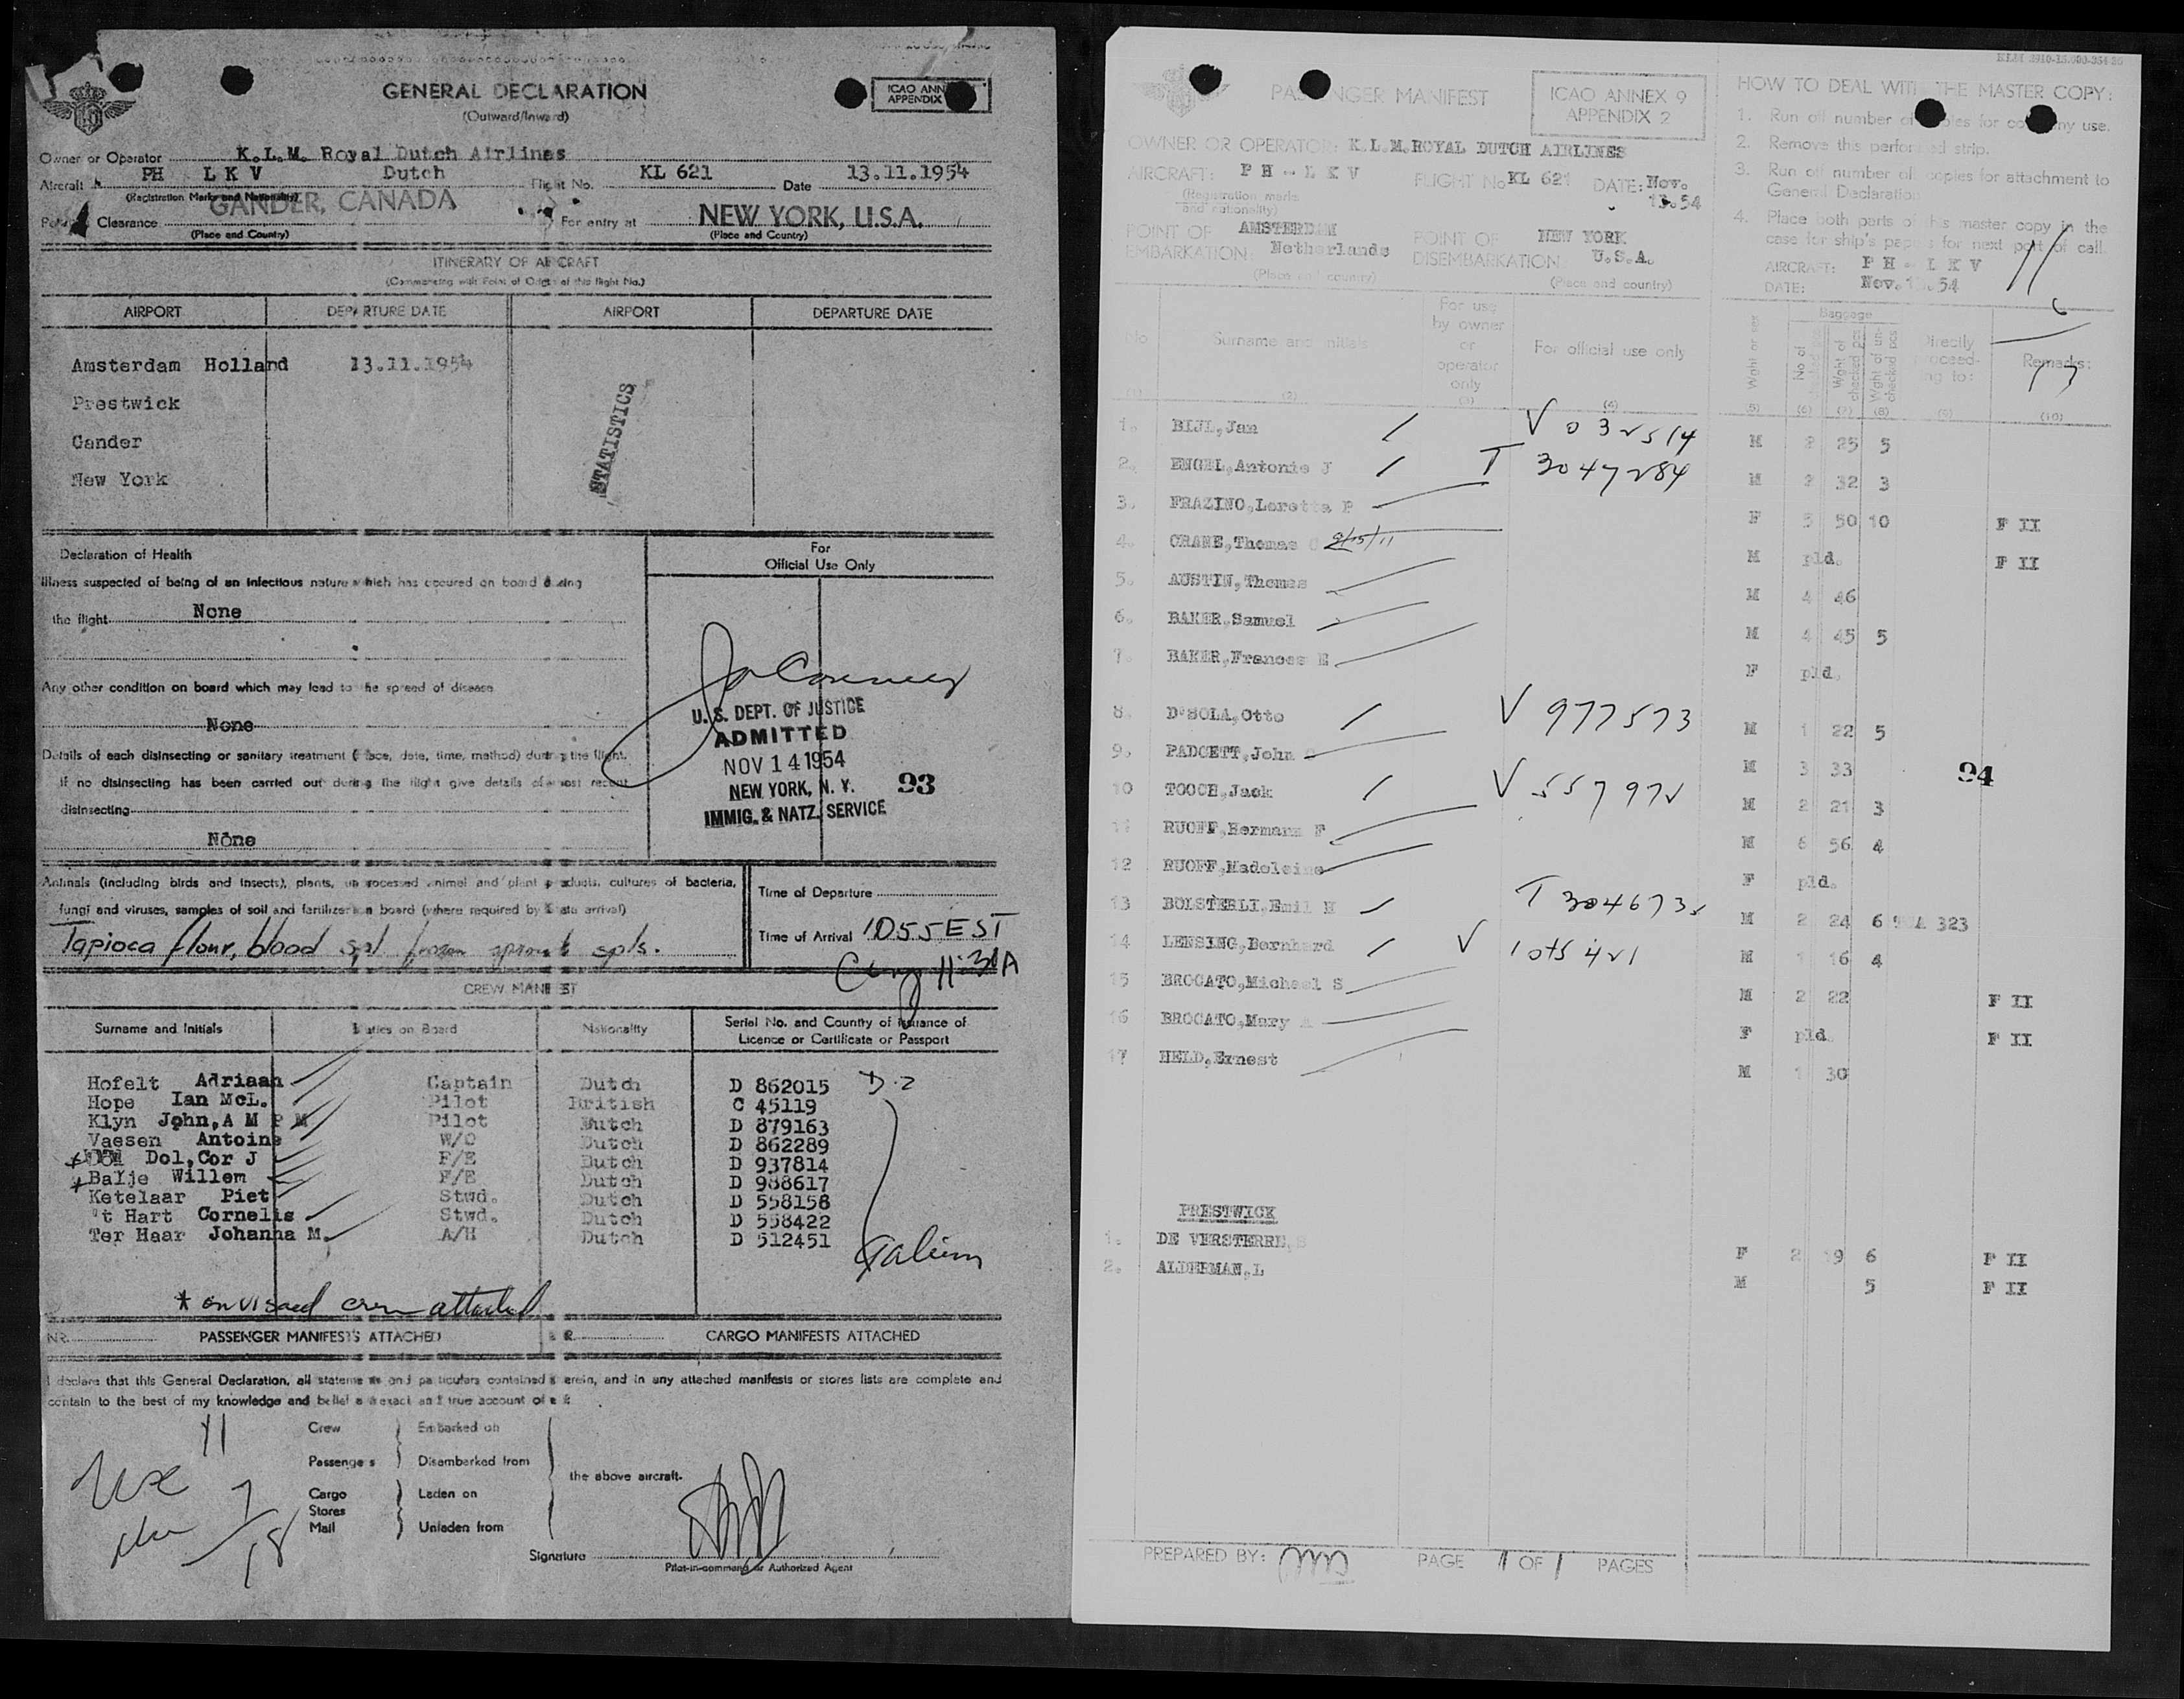 GENERAL DECLARATION
(Outward/Inward)
ICAO ANN
APPENDIX
Owner or Operator K.L.M. Royal Dutch Airlines
Aircraft PH L K V Dutch Flight No. KL 621 Date 13.11.1954
(Registration Marks and Nationality)
GANDER, CANADA
Clearance For entry at NEW YORK, U.S.A.
(Place and Country) (Place and Country)
ITINERARY OF AIRCRAFT
(Commencing with Point of Origin of this flight No.)
AIRPORT DEPARTURE DATE AIRPORT DEPARTURE DATE
Amsterdam Holland 13.11.1954
Prestwick
Gander
New York
STATISTICS
Declaration of Health
For
Official Use Only
Illness suspected of being of an infectious nature which has occured on board during
the flight None
Any other condition on board which may lead to the spread of disease
None
Details of each disinsecting or sanitary treatment (place, date, time, method) during the flight.
If no disinsecting has been carried out during the flight give details of most recent
disinsecting
None
U.S. DEPT. OF JUSTICE
ADMITTED
NOV 14 1954
NEW YORK, N. Y.
IMMIG. & NATZ. SERVICE
93
Animals (including birds and insects), plants, unprocessed animal and plant products, cultures of bacteria,
fungi and viruses, samples of soil and fertilizer on board (where required by State arrival)
Tapioca flour, blood spl frozen spls.
Time of Departure
Time of Arrival 1055 EST
11:30A
CREW MANIFEST
Surname and Initials Duties on Board Nationality Serial No. and Country of issuance of
Licence or Certificate or Passport
Hofelt Adriaan Captain Dutch D 862015 D-2
Hope Ian McL. Pilot British C 45119
Klyn John, A M P M Pilot Dutch D 879163
Vaesen Antoine W/O Dutch D 862289
Dol, Cor J F/E Dutch D 937814
Balje Willem F/E Dutch D 988617
Ketelaar Piet Stwd. Dutch D 558158
't Hart Cornelis Stwd. Dutch D 558422
Ter Haar Johanna M. A/H Dutch D 512451
* on visaed crew attached
NR. PASSENGER MANIFESTS ATTACHED CARGO MANIFESTS ATTACHED
I declare that this General Declaration, all statements and particulars contained herein, and in any attached manifests or stores lists are complete and
contain to the best of my knowledge and belief a exact and true account of all
Crew Embarked on
Passengers Disembarked from
the above aircraft.
Cargo Laden on
Stores
Mail Unladen from
11
18
Signature
Pilot-in-command or Authorized Agent
PASSENGER MANIFEST
ICAO ANNEX 9
APPENDIX 2
OWNER OR OPERATOR: K.L.M. ROYAL DUTCH AIRLINES
AIRCRAFT: P H - L K V FLIGHT No KL 621 DATE: Nov.
13.54
(Registration marks
and nationality)
POINT OF AMSTERDAM POINT OF NEW YORK
EMBARKATION: Netherlands DISEMBARKATION: U.S.A.
(Place and country) (Place and country)
HOW TO DEAL WITH THE MASTER COPY:
1. Run off number of copies for company use.
2. Remove this perforated strip.
3. Run off number of copies for attachment to
General Declaration.
4. Place both parts of this master copy in the
case for ship's papers for next port of call.
AIRCRAFT: P H - L K V
DATE: Nov. 54
No Surname and initials For use by owner or operator only For official use only Wght or sex Baggage Directly proceeding to: Remarks:
(2) (3) (4) (5) (6) (7) (8) (9) (10)
17
1. BIJL, Jan V 032514 M 2 25 5
2. ENGEL, Antonie J T 3047284 M 2 32 3
3. FRAZINO, Loretta P F 5 50 10 F II
4. CRANE, Thomas C 9/15/11 M pld. F II
5. AUSTIN, Thomas M 4 46
6. BAKER, Samuel M 4 45 5
7. BAKER, Frances E F pld.
8. D'SOLA, Otto V 977573 M 1 22 5
9. PADGETT, John M 3 33
94
10 TOOCH, Jack V 557972 M 2 21 3
11 RUOFF, Hermann F M 6 56 4
12 RUOFF, Madeleine F pld.
13 BOLSTERLI, Emil H T 304673 M 2 24 6 A 323
14 LENSING, Bernhard V M 1 16 4
15 BROCATO, Michael S M 2 22 F II
16 BROCATO, Mary A F pld. F II
17 HELD, Ernest M 1 30
PRESTWICK
1. DE VERSTERRE, S F 2 19 6 F II
2. ALDERMAN, L M 5 F II
PREPARED BY: PAGE 1 OF 1 PAGES